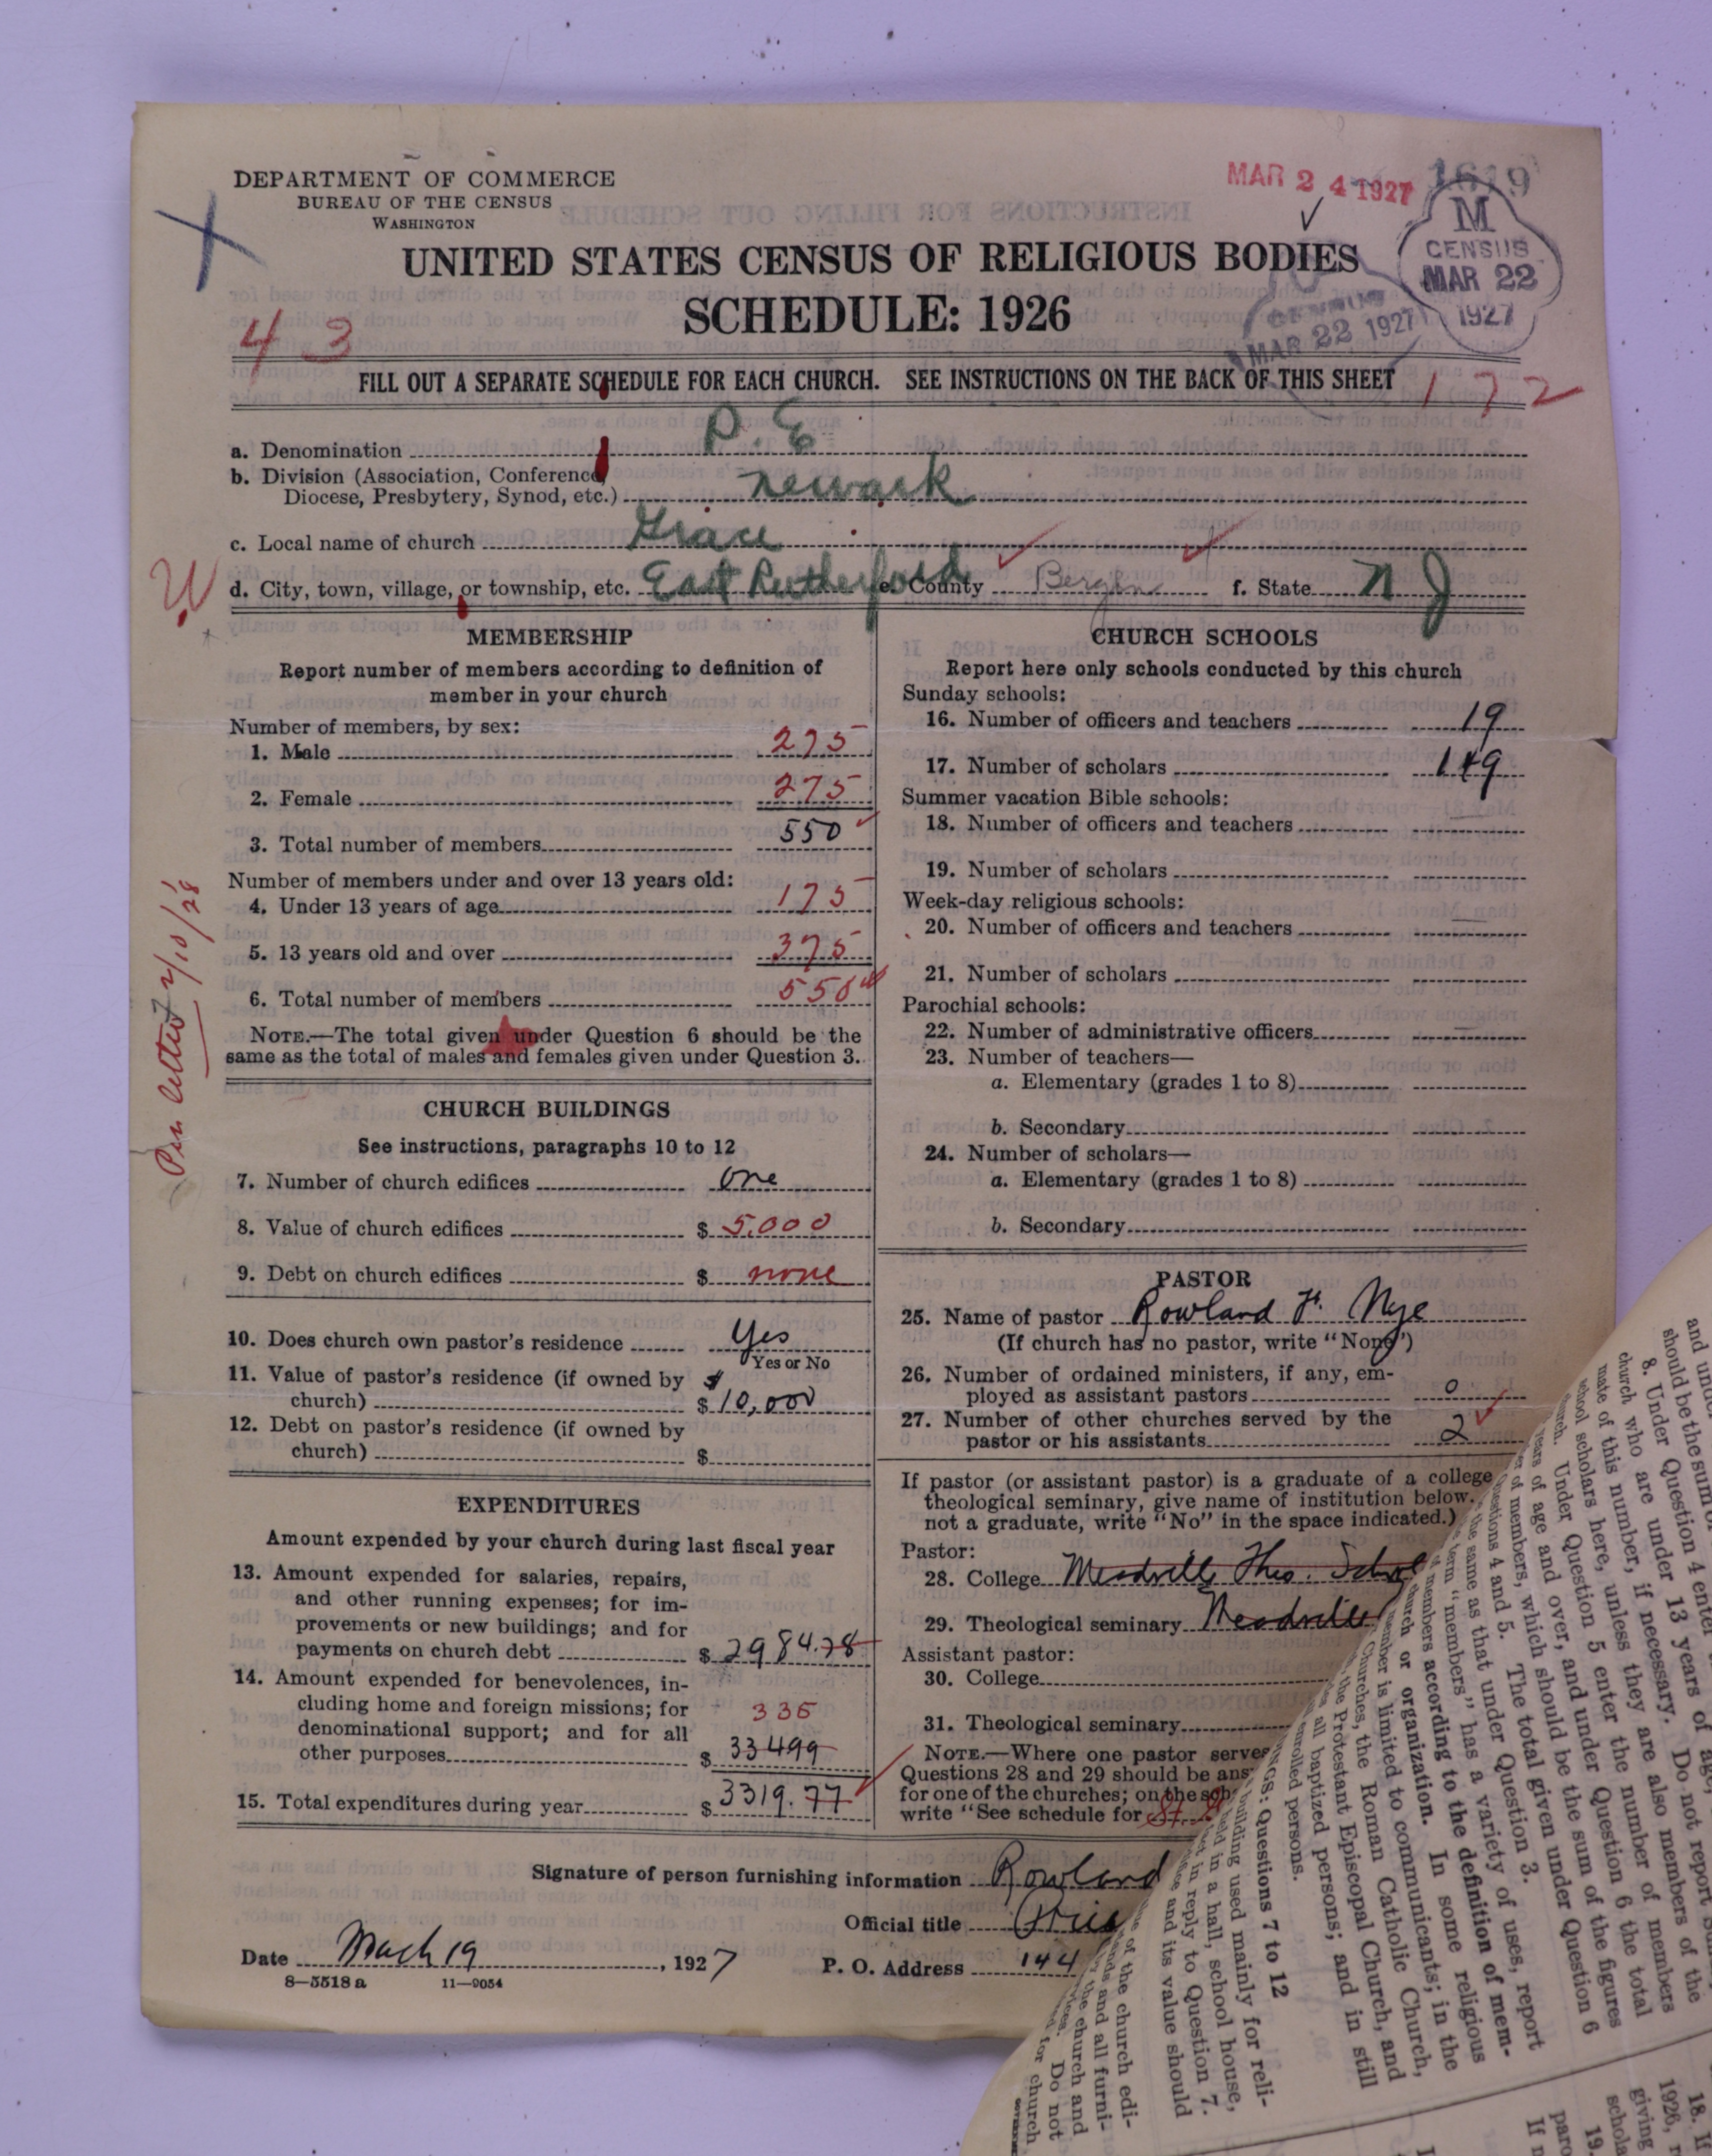 DEPARTMENT OF COMMERCE
BUREAU OF THE CENSUS
WASHINGTON
MAR 24 1927
1619
M
CENSUS
MAR 22
1927
MAR 22 1927
UNITED STATES CENSUS OF RELIGIOUS BODIES
SCHEDULE: 1926
43
FILL OUT A SEPARATE SCHEDULE FOR EACH CHURCH. SEE INSTRUCTIONS ON THE BACK OF THIS SHEET
172
a. Denomination P. E
b. Division (Association, Conference,
Diocese, Presbytery, Synod, etc.) Newark
c. Local name of church Grace
d. City, town, village, or township, etc. East Rutherford e. County Bergen f. State N J
MEMBERSHIP
Report number of members according to definition of
member in your church
Number of members, by sex:
1. Male 275
2. Female 275
3. Total number of members 550
Number of members under and over 13 years old:
4. Under 13 years of age 175
5. 13 years old and over 375
6. Total number of members 550
NOTE.—The total given under Question 6 should be the
same as the total of males and females given under Question 3.
Per letter 2/10/28
CHURCH BUILDINGS
See instructions, paragraphs 10 to 12
7. Number of church edifices one
8. Value of church edifices $ 5,000
9. Debt on church edifices $ none
10. Does church own pastor's residence Yes
Yes or No
11. Value of pastor's residence (if owned by
church) $ 10,000
12. Debt on pastor's residence (if owned by
church) $
EXPENDITURES
Amount expended by your church during last fiscal year
13. Amount expended for salaries, repairs,
and other running expenses; for im-
provements or new buildings; and for
payments on church debt $ 2984.78
14. Amount expended for benevolences, in-
cluding home and foreign missions; for 335
denominational support; and for all
other purposes $ 33499
15. Total expenditures during year $ 3319.77
CHURCH SCHOOLS
Report here only schools conducted by this church
Sunday schools:
16. Number of officers and teachers 19
17. Number of scholars 149
Summer vacation Bible schools:
18. Number of officers and teachers
19. Number of scholars
Week-day religious schools:
20. Number of officers and teachers
21. Number of scholars
Parochial schools:
22. Number of administrative officers
23. Number of teachers—
a. Elementary (grades 1 to 8)
b. Secondary
24. Number of scholars—
a. Elementary (grades 1 to 8)
b. Secondary
PASTOR
25. Name of pastor Rowland F. Nye
(If church has no pastor, write "None")
26. Number of ordained ministers, if any, em-
ployed as assistant pastors 0
27. Number of other churches served by the
pastor or his assistants 2
If pastor (or assistant pastor) is a graduate of a college
theological seminary, give name of institution below.
not a graduate, write "No" in the space indicated.)
Pastor:
28. College Meadville Theo. School
29. Theological seminary Meadville
Assistant pastor:
30. College
31. Theological seminary
NOTE.—Where one pastor serves
Questions 28 and 29 should be ans
for one of the churches; on the sch
write "See schedule for St.
Signature of person furnishing information Rowland
Official title
Date March 19, 1927
P. O. Address 144
8—5518 a 11—9054
should be the sum of
8. Under Question 4 enter
church who are under 13 years of age,
mate of this number, if necessary. Do not report
school scholars here, unless they are also members of the
church. Under Question 5 enter the number of members
years of age and over, and under Question 6 the total
of members, which should be the sum of the figures
Questions 4 and 5. The total given under Question 6
the same as that under Question 3.
term "members" has a variety of uses, report
members according to the definition of mem-
church or organization. In some religious
member is limited to communicants; in the
Churches, the Roman Catholic Church,
the Protestant Episcopal Church, and
all baptized persons; and in still
enrolled persons.
GS: Questions 7 to 12
building used mainly for reli-
held in a hall, school house,
in reply to Question 7.
and its value should
of the church edi-
and all furni-
the church and
Do not
for church
18. If
1926,
giving
schola
19.
paro
If